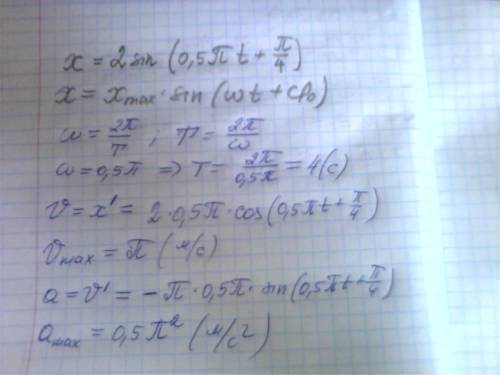 x = 2 sin (0,5π t + π/4)
x = xmax · sin (ωt + φ₀)
ω = 2π/T ; T = 2π/ω
ω = 0,5π ⇒ T = 2π/0,5π = 4(с)
v = x' = 2 · 0,5π · cos(0,5πt + π/4)
vmax = π (м/с)
a = v' = − π · 0,5π · sin(0,5πt + π/4)
amax = 0,5π² (м/с²)